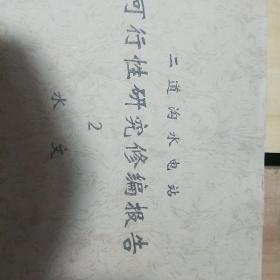 二道沟水电站
可行性研究修编报告
2
水文